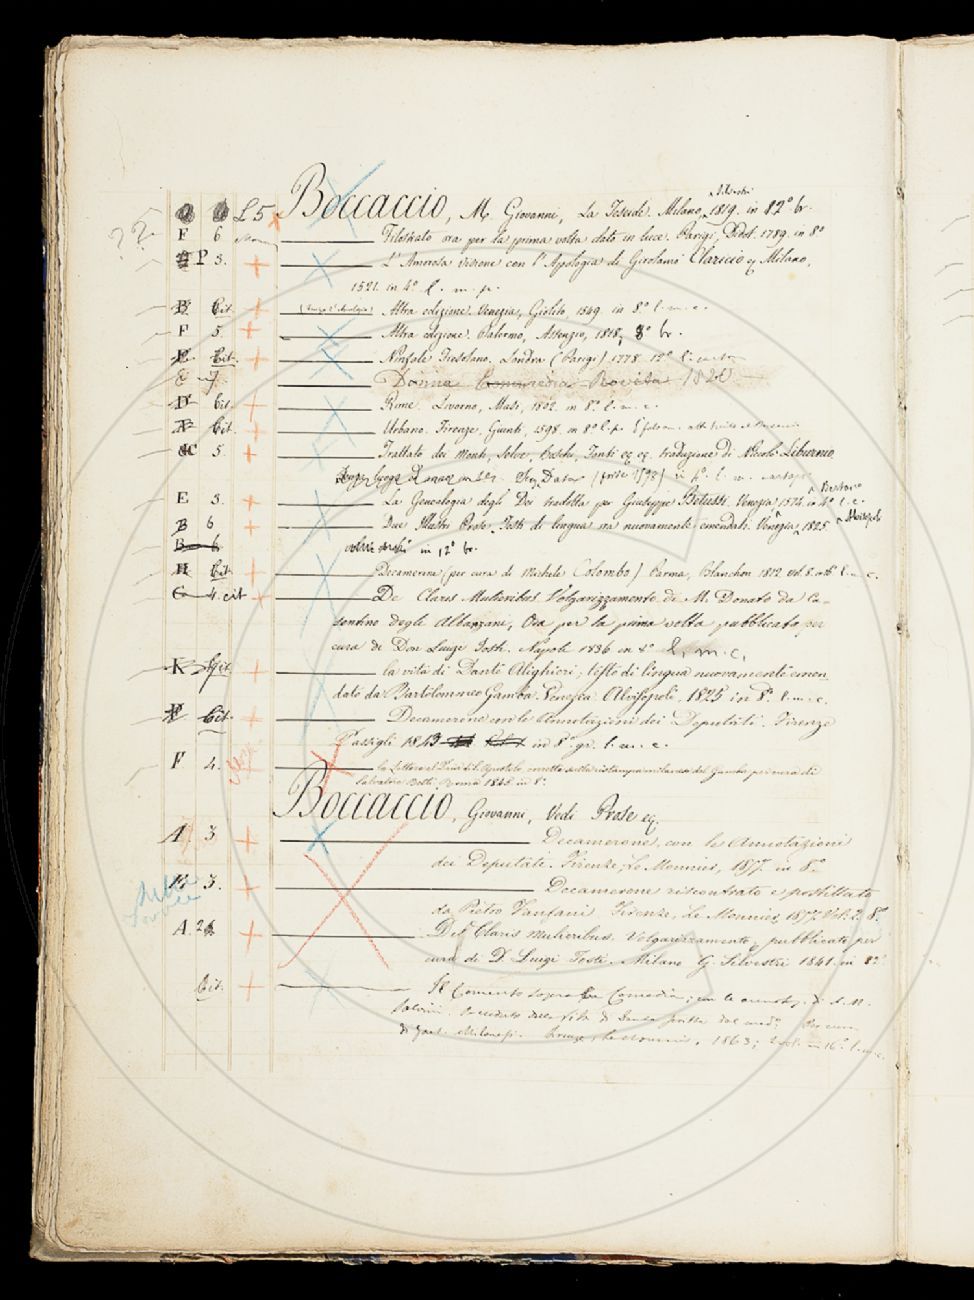 Silvestri
L 5 Boccaccio, M. Giovanni, La Teseide. Milano, 1819. in 82° br.
F 6 Filostrato ora per la prima volta dato in luce. Parigi, Didot. 1789. in 8°
P 3. L'Amorosa visione con l'Apologia di Girolamo Claricio eq Milano,
1521. in 4° l. m. p.
B Cit. Altra edizione. Venezia, Giolito, 1549. in 8° l. m. c.
F 5. Altra edizione. Palermo, Assenzio, 1818, 8° br.
E Cit. Ninfale Fiesolano. Londra (Parigi) 1778. 12°
Donna Rovita 1820
D Cit. Rime. Livorno, Masi, 1802. in 8° l. m. c.
Cit. Urbano. Firenze, Giunti, 1598. in 8° l. p.
C 5. Trattato dei Monti, Selve, Boschi, Fonti eq eq. traduzione di Nicolò Liburnio
in 4° l. m.
E 3. La Genealogia degli Dei tradotta per Giuseppe Betussi. Venezia 1574. in 4° l. c.
B 6 Due Illustri Prose. Testi di lingua ora nuovamente emendati. Venezia, 1825 Alvisopoli
B 6 in 12° br.
H Cit. Decamerone (per cura di Michele Colombo) Parma, Blanchon 1812 vol. 8. l. m. c.
G 4 cit De Claris Mulieribus Volgarizzamento di M. Donato da Ca-
sentino degli Albanzani, Ora per la prima volta pubblicato per
cura di Don Luigi Tosti. Napoli 1836 in 8° l. m. c.
K Cit. la vita di Dante Alighieri; testo di lingua nuovamente emen
dato da Bartolommeo Gamba. Venezia Alvisopoli. 1825 in 8° l. m. c.
Cit. Decamerone con le Annotazioni dei Deputati. Firenze
Passigli 1843 in 8° gr. l. m. c.
F 4.
Salvatore Betti. Roma 1845 in 8°
Boccaccio, Giovanni, Vedi Prose eq.
A 3 Decamerone, con le Annotazioni
dei Deputati. Firenze, Le Monnier, 1857. in 8°
3. Decamerone riscontrato e postillato
da Pietro Fanfani Firenze, Le Monnier, 1857. Vol. 2. 8°
A. 2 Del Claris mulieribus. Volgarizzamento, pubblicato per
cura di D. Luigi Tosti. Milano G. Silvestri 1841. in 82°
Cit. Il Comento sopra la Comedia; con le annotaz. di A. M.
Salvini. Preceduto dalla Vita di Dante scritta dal med° Per cura
di Gaet. Milanesi. Firenze, Le Monnier, 1863; 2 vol. in 16° l. m. c.